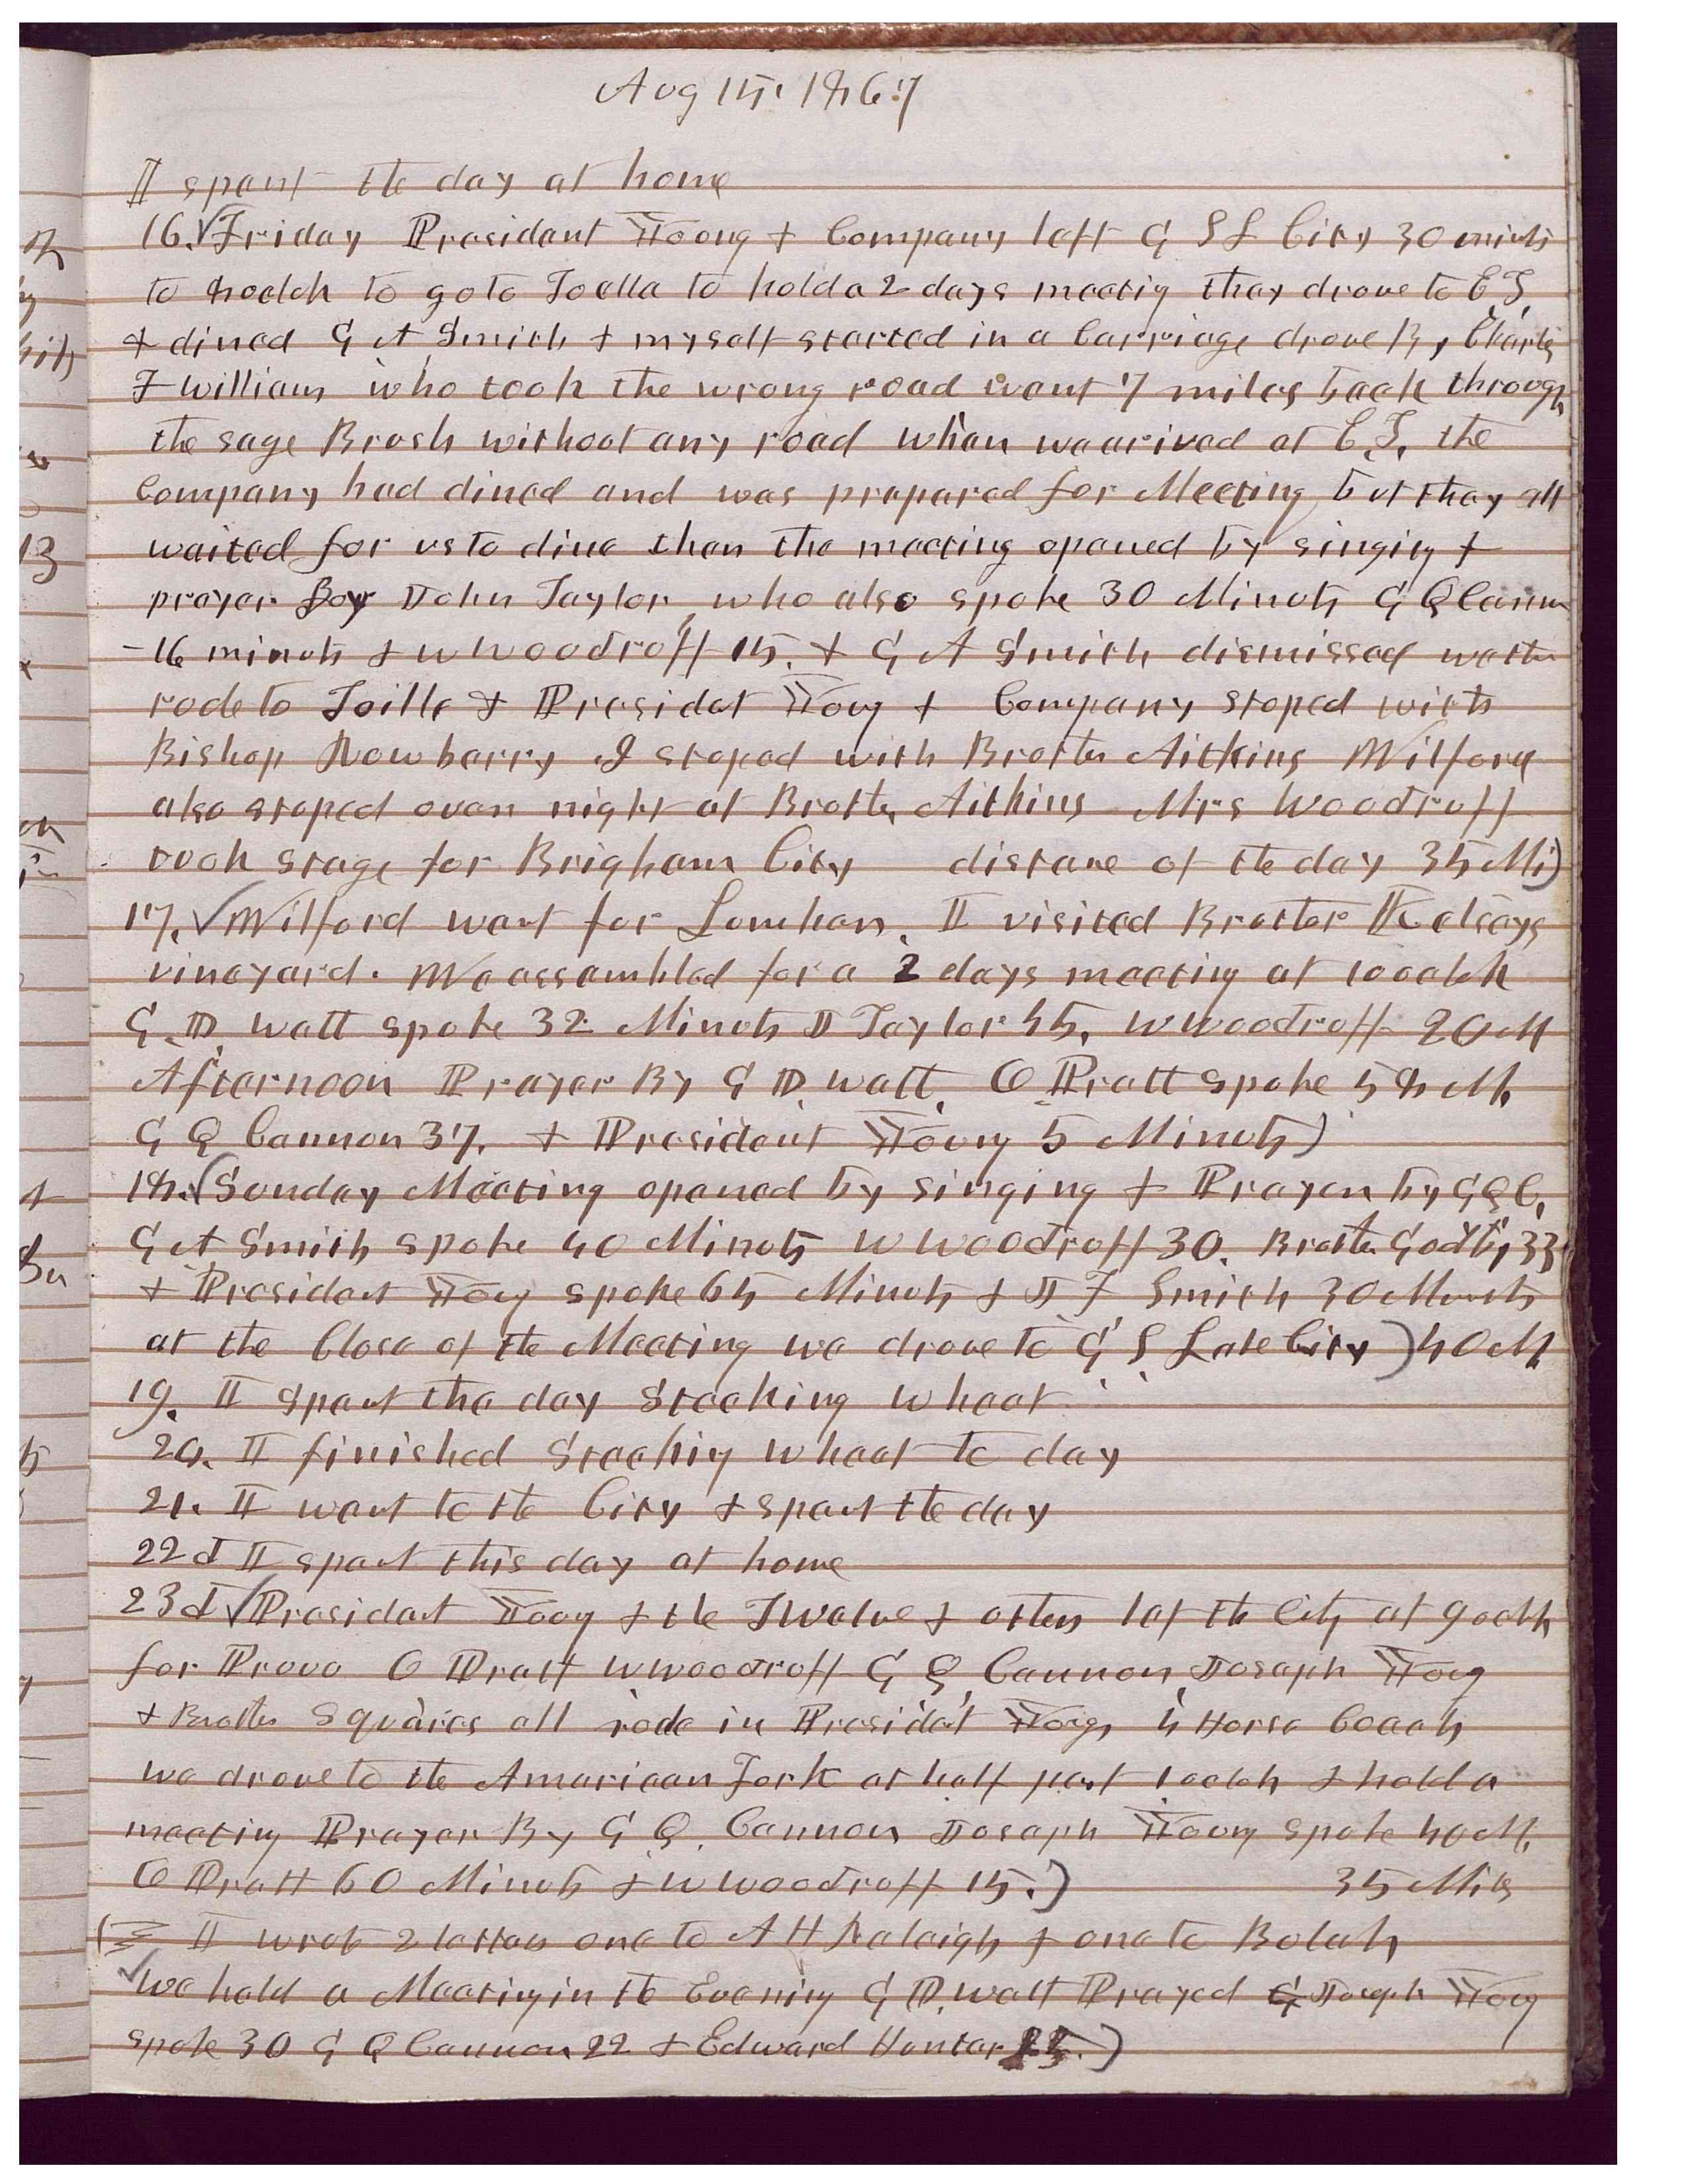 Aug 15. 1867
I spent the day at home
16. Friday President Young & Company left G S L City 30 minuts
to to go to Toella to hold a 2 days meetig they drove to E.T.
& dined G A Smith & myself started in a Carriage drove By Charles
F William who took the wrong road went 7 miles back through
the sage Brush without any road when we arived at E.T. the
Company had dined and was prepared for Meeting but they all
waited for us to dine then the meeting opened by singing &
prayer By John Taylor who also spoke 30 Minuts G Q Cannon
16 minuts & W Woodruff 15. & G A Smith dismissed we then
rode to Toille & Presidet Young & Company stoped with
Bishop Rowberry I stoped with Brother Aitkins Wilford
also stoped over night at Brother Aitkins Mrs Woodruff
took stage for Brigham City distane of the day 35 Mi)
17. Wilford went for Lonehan. I visited Brother Kelseys
vineyard. We assembled for a 2 days meeting at 10 oclok
G. D. Watt spoke 32 Minuts J Taylor 45, W Woodruff 20 M
Afternoon Prayer By G D. Watt. O Pratt spoke 58 M.
G Q Cannon 37. & President Young 5 Minuts)
18. Sunday Meeting opened by singing & Prayer by G Q C.
G A Smith spoke 40 Minuts W Woodruff 30. Brother Godby 33
& President Young spoke 65 Minuts & J F Smith 30 Minuts
at the Close of the Meeting we drove to G S Lake City) 40 M
19. I spent the day Stacking Wheat
20. I finished Stackig Wheat to day
21. I went to the City & spent the day
22d I spent this day at home
23d President Young & the Twelve & others left the City at 9 oclk
for Provo O Pratt W Woodruff G Q Cannon, Joseph Young
& Brother Squares all rode in Presidet Youngs 4 Horse Coach
we drove to the American Fork at half past 1 oclok & held a
meeting Prayer By G Q. Cannon Joseph Young spoke 40 M.
O Pratt 60 Minuts & W Woodruff 15.) 35 Mils
I wrote 2 letters one to A H Raleigh & one to Bulah
We held a Meeting in the Evening G D. Watt Prayed G Joseph Young
spoke 30 G Q Cannon 22 & Edward Hunter 15.)